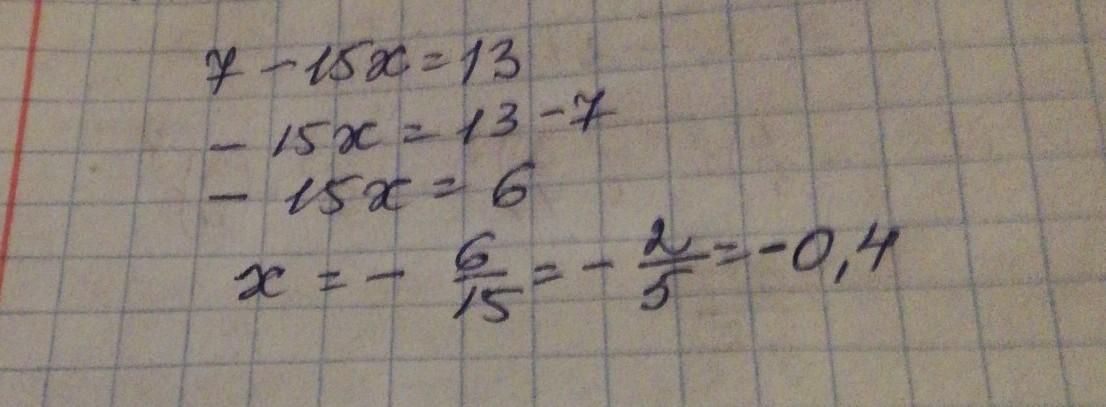 7 - 15x = 13
- 15x = 13 - 7
- 15x = 6
x = - 6/15 = - 2/5 = -0,4